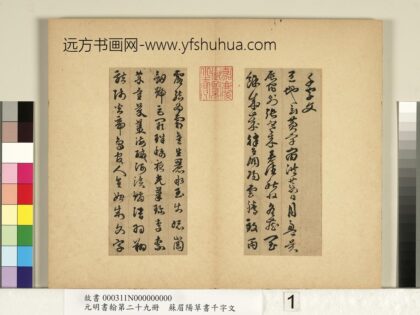 远方书画网-www.yfshuhua.com
千字文
天地玄黃宇宙洪荒日月盈昃
辰宿列張寒來暑往秋收冬藏閏
餘成歲律呂調陽雲騰致雨
露結為霜金生麗水玉出崑崗
劍號巨闕珠稱夜光菓珍李柰
菜重芥薑海鹹河淡鱗潛羽翔
龍師火帝鳥官人皇始制文字
故書 000311N000000000
元明書翰第二十九冊 蘇眉陽草書千字文
1